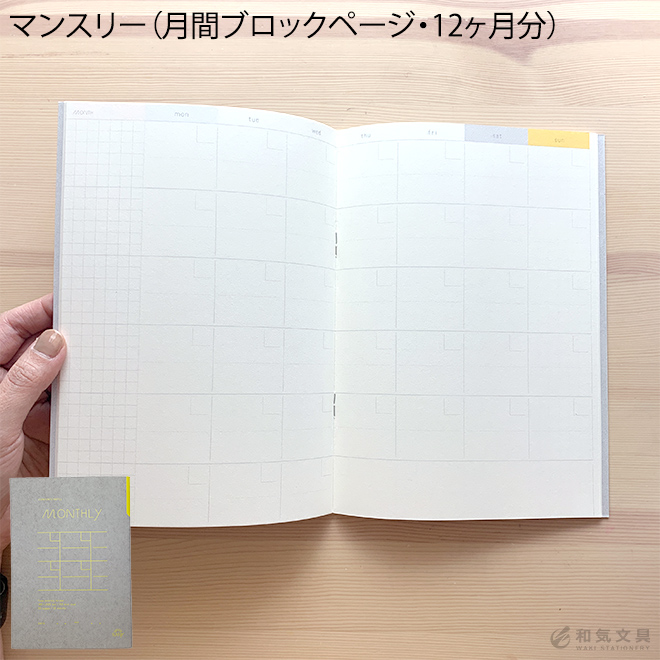 マンスリー（月間ブロックページ・12ヶ月分）
Month mon tue wed thu fri sat sun
MONTHLY
和気文具
WAKI STATIONERY